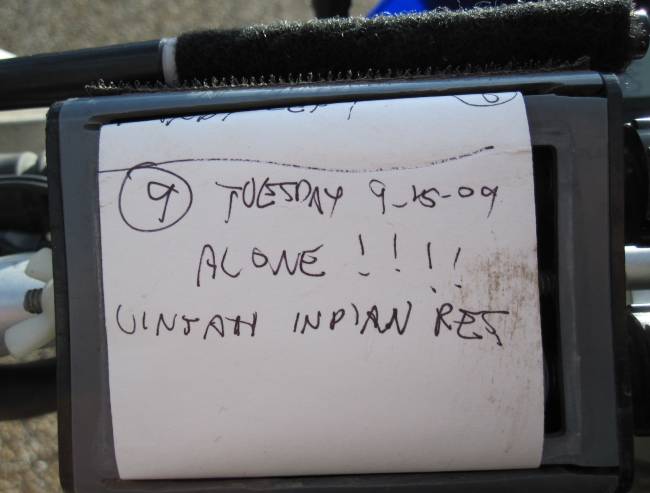 9 TUESDAY 9-15-09
ALONE !!!!
UINTAH INDIAN RES